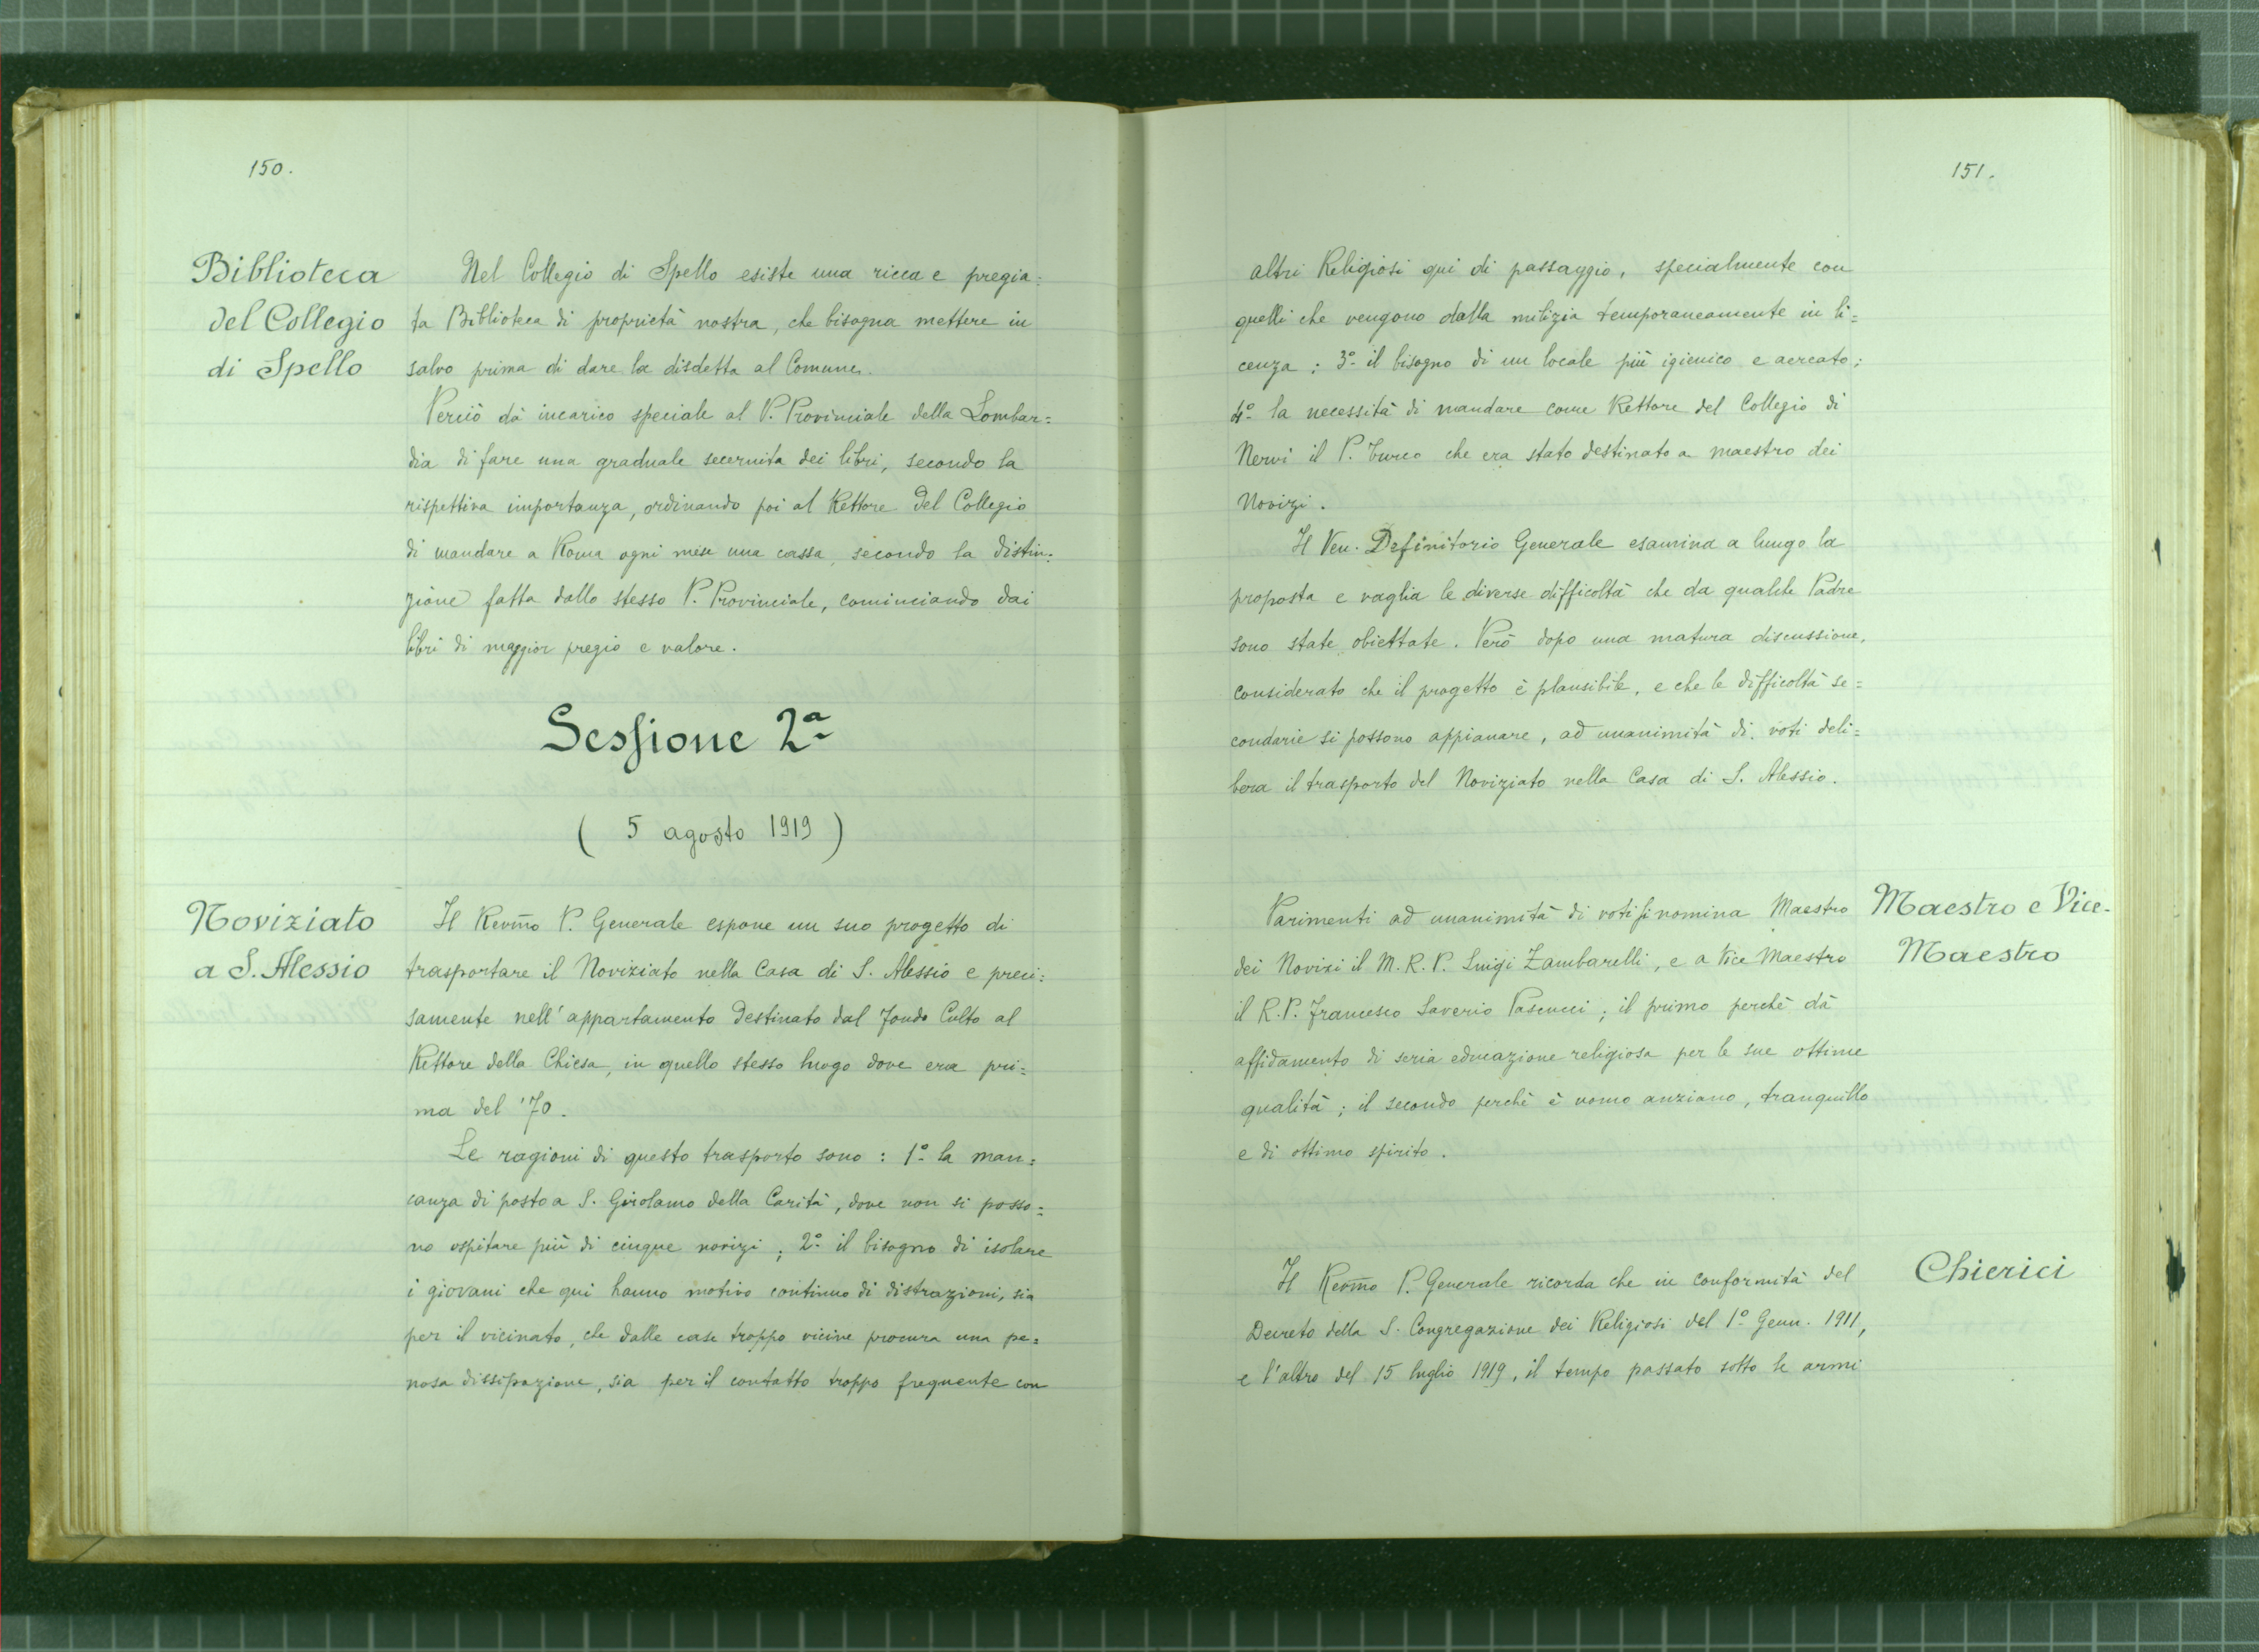 150.
Biblioteca
del Collegio
di Spello
Nel Collegio di Spello esiste una ricca e pregia=
ta Biblioteca di proprietà nostra, che bisogna mettere in
salvo prima di dare la disdetta al Comune.
Perciò dà incarico speciale al P. Provinciale della Lombar=
dia di fare una graduale secernita dei libri, secondo la
rispettiva importanza, ordinando poi al Rettore del Collegio
di mandare a Roma ogni mese una cassa, secondo la distin=
zione fatta dallo stesso P. Provinciale, cominciando dai
libri di maggior pregio e valore.
Sessione 2ª
( 5 agosto 1919 )
Noviziato
a S. Alessio
Il Revm̃o P. Generale espone un suo progetto di
trasportare il Noviziato nella Casa di S. Alessio e preci=
samente nell'appartamento destinato dal Fondo Culto al
Rettore della Chiesa, in quello stesso luogo dove era pri=
ma del '70.
Le ragioni di questo trasporto sono : 1º la man=
canza di posto a S. Girolamo della Carità, dove non si posso=
no ospitare più di cinque novizi ; 2º il bisogno di isolare
i giovani che qui hanno motivo continuo di distrazioni, sia
per il vicinato, che dalle case troppo vicine procura una pe=
nosa dissipazione, sia per il contatto troppo frequente con
151.
altri Religiosi qui di passaggio, specialmente con
quelli che vengono dalla milizia temporaneamente in li=
cenza ; 3º il bisogno di un locale più igienico e aereato ;
4º la necessità di mandare come Rettore del Collegio di
Nervi il P. Turco che era stato destinato a maestro dei
Novizi.
Il Ven. Definitorio Generale esamina a lungo la
proposta e vaglia le diverse difficoltà che da qualche Padre
sono state obiettate. Però dopo una matura discussione,
considerato che il progetto è plausibile, e che le difficoltà se=
condarie si possono appianare, ad unanimità di voti deli=
bera il trasporto del Noviziato nella Casa di S. Alessio.
Maestro e Vice-
Maestro
Parimenti ad unanimità di voti si nomina Maestro
dei Novizi il M. R. P. Luigi Zambarelli, e a Vice Maestro
il R. P. Francesco Saverio Pascucci ; il primo perchè dà
affidamento di seria educazione religiosa per le sue ottime
qualità ; il secondo perchè è uomo anziano, tranquillo
e di ottimo spirito.
Chierici
Il Revm̃o P. Generale ricorda che in conformità del
Decreto della S. Congregazione dei Religiosi del 1º Genn. 1911,
e l'altro del 15 luglio 1919, il tempo passato sotto le armi